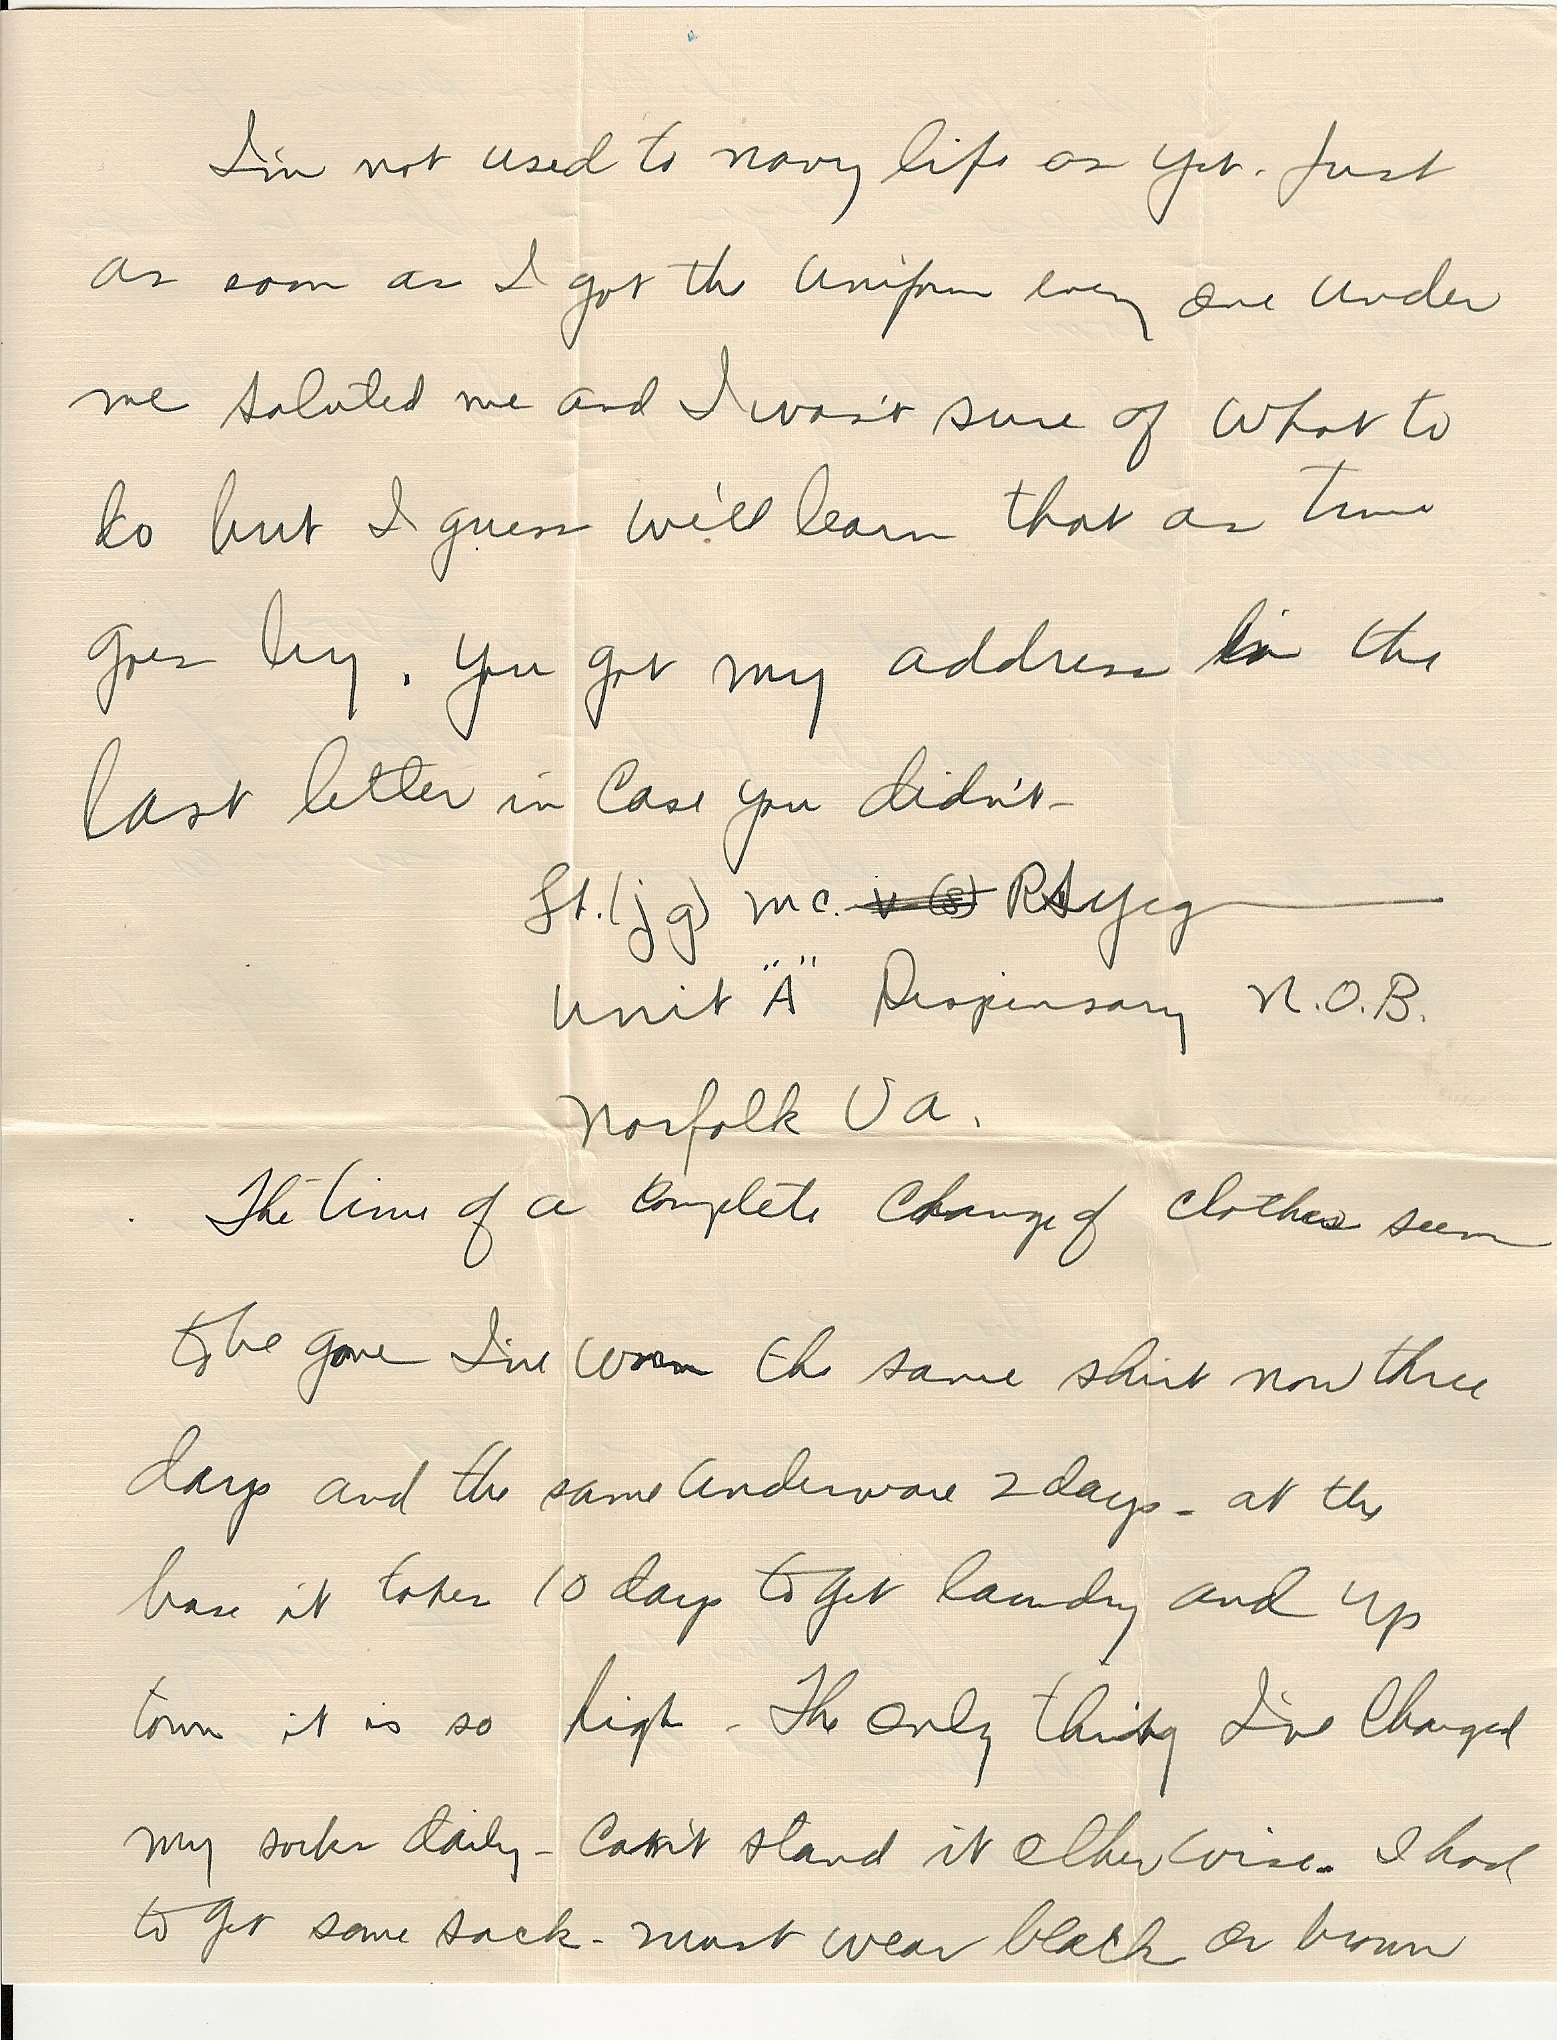 I'm not used to navy life as yet. Just
as soon as I got the uniform every one under
me saluted me and I wasn't sure of what to
do but I guess we'll learn that as time
goes by. You got my address in the
last letter in case you didn't-
Lt.(jg) MC.
Unit "A" Dispensary N.O.B.
Norfolk Va.
The time of a complete change of clothes seem
to be gone I've worn the same shirt now three
days and the same underware 2 days - at the
base it takes 10 days to get laundry and up
town it is so high - The only thing I've changed
my socks daily - can't stand it otherwise. I had
to get some sock - must wear black or brown